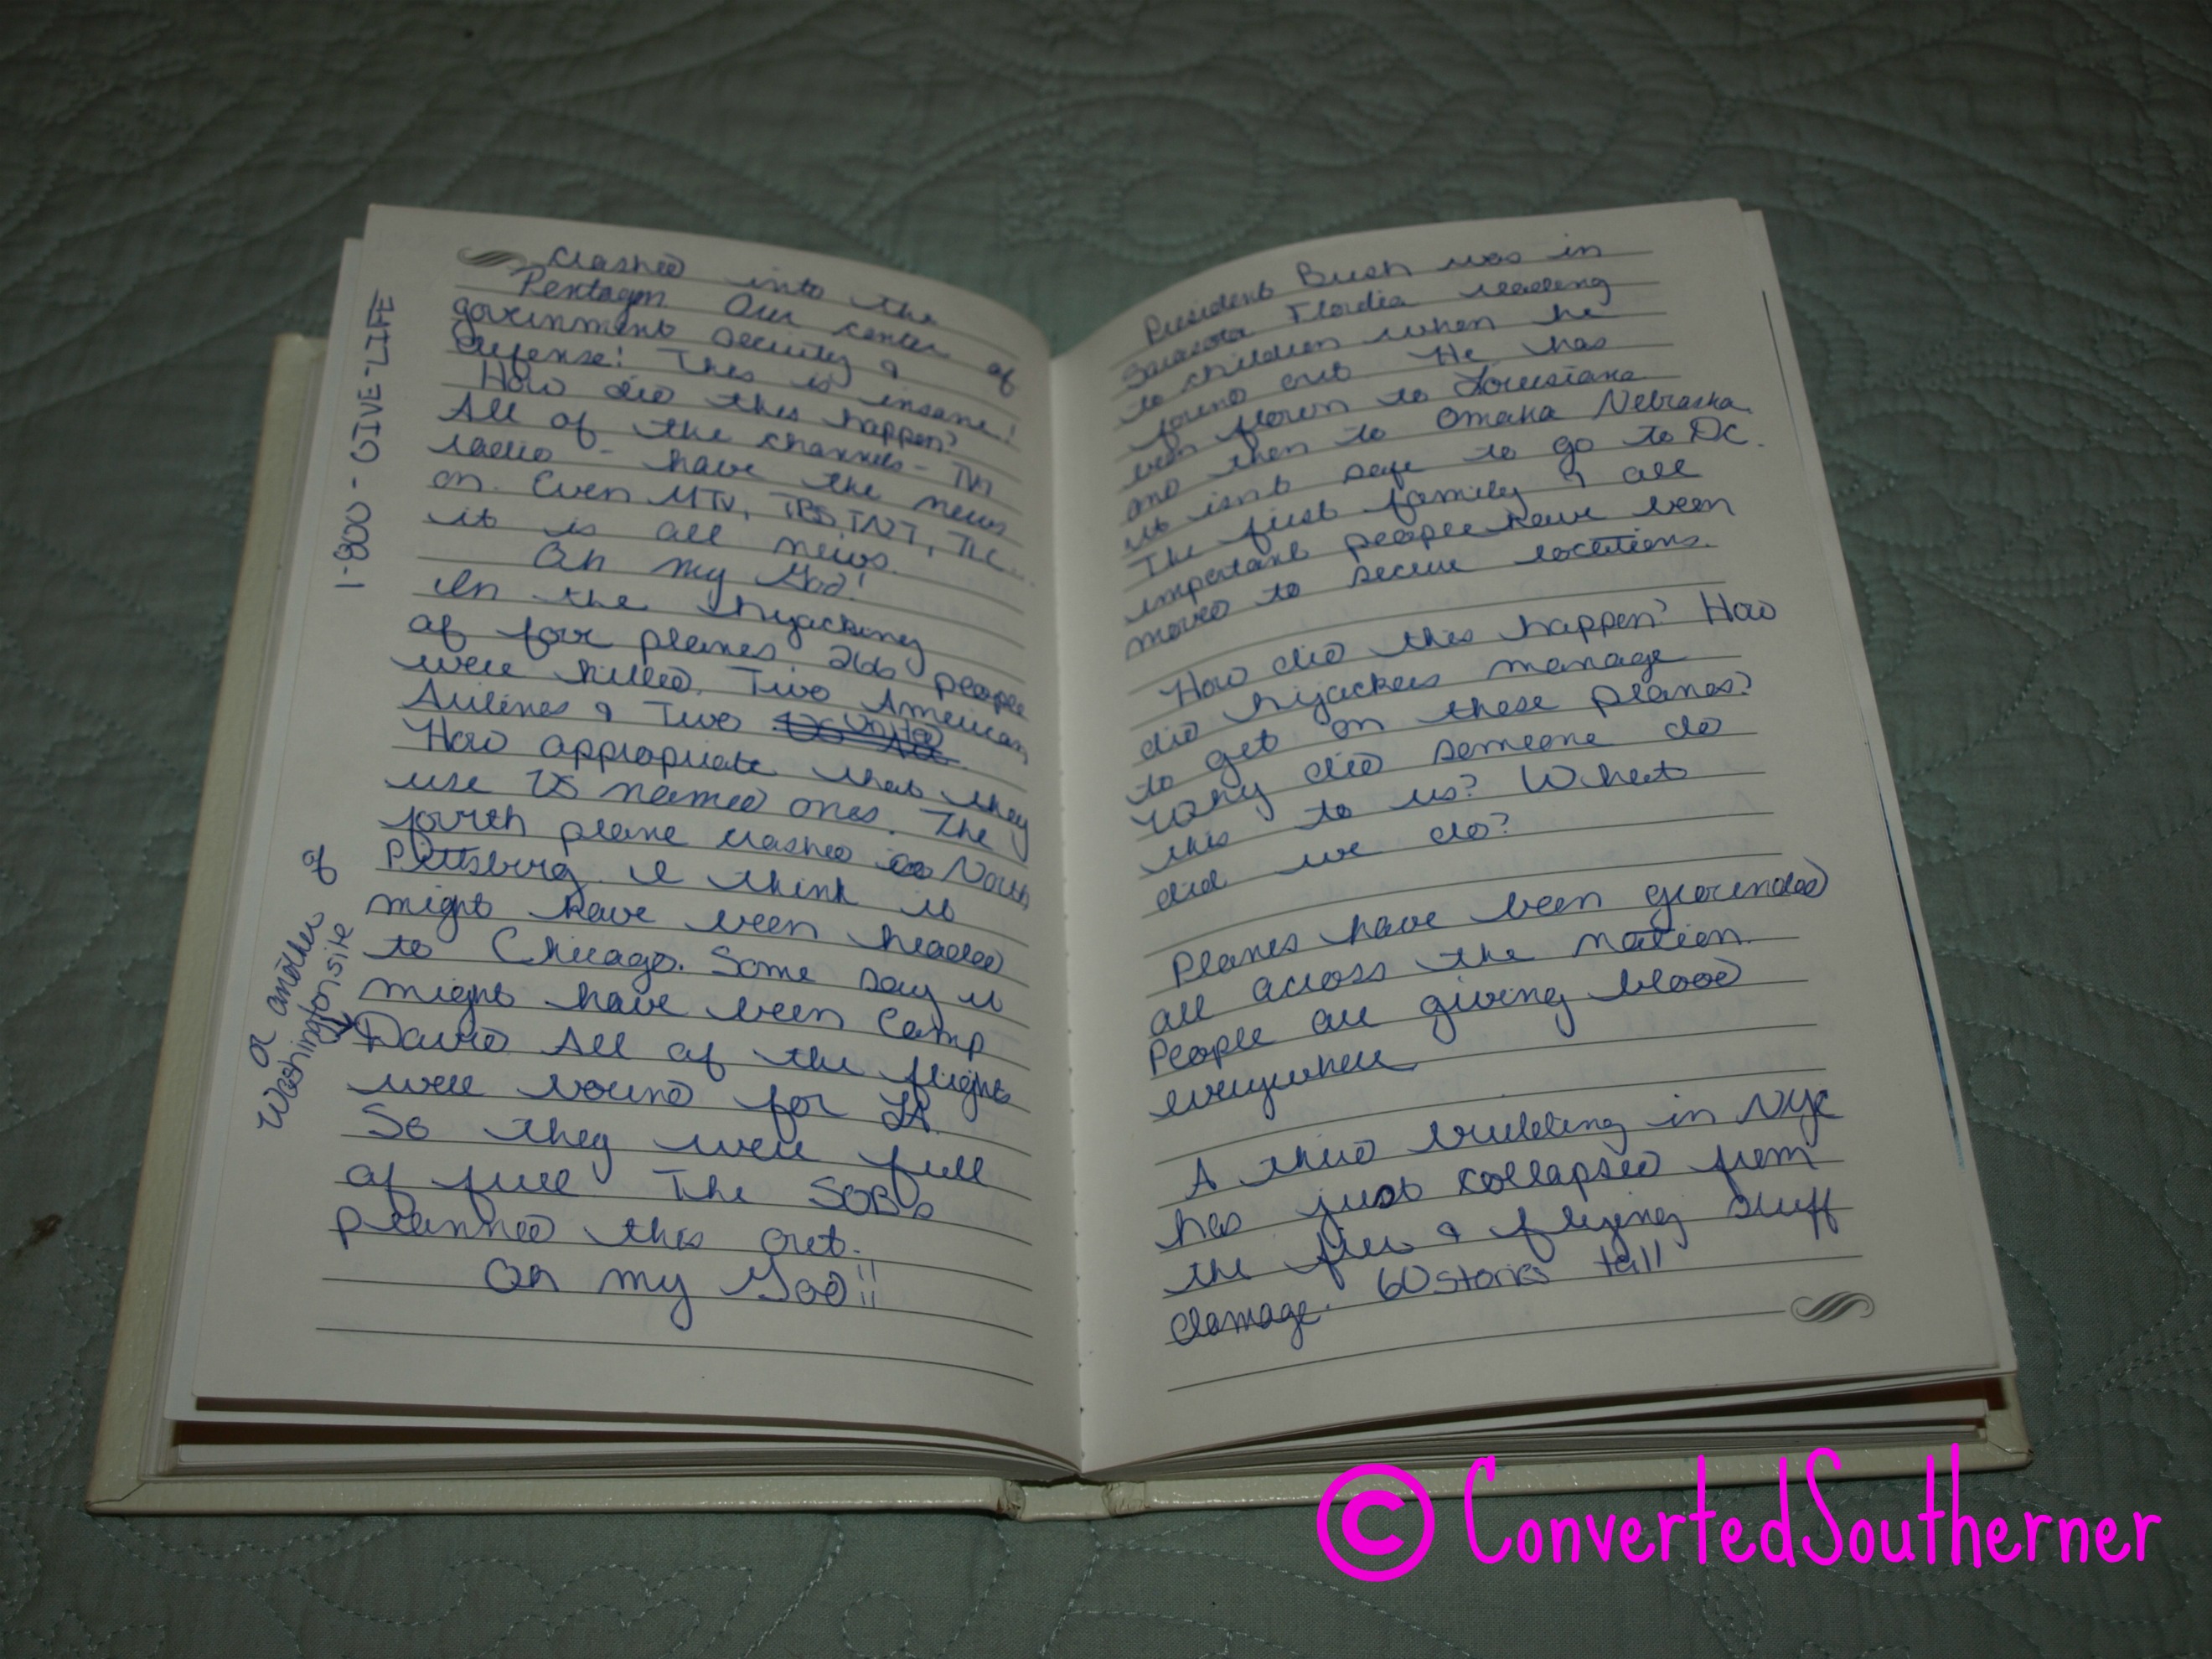 crashed into the
Pentagon Our center of
government security &
defense! This is insane!
How did this happen?
All of the channels - TV,
radio - have the news
on. Even MTV, TBS, TNT, TLC...
it is all news.
Oh my God!
In the hijacking
of four planes, 266 people
were killed. Two American
Airlines & Two United
How appropriate that they
use US named ones. The
fourth plane crashed North
Pittsburg. I think it
might have been headed
to Chicago. Some say it
might have been Camp
David All of the flights
were bound for LA.
So they were full
of fuel. The SOBs
planned this out.
Oh my God!!
1-800-GIVE-LIFE
or another of
Washington site
President Bush was in
Sarasota Flordia reading
to children when he
found out He has
been flown to Louisiana
and then to Omaha Nebraska.
it isnt safe to go to DC.
The first family & all
important people have been
moved to secure locations.
How did this happen? How
did hijackers manage
to get on these planes?
Why did someone do
this to us? What
did we do?
Planes have been grounded
all across the nation.
People are giving blood
everywhere.
A third building in NYC
has just collapsed from
the fire & flying stuff
damage. 60 stories tall
© ConvertedSoutherner